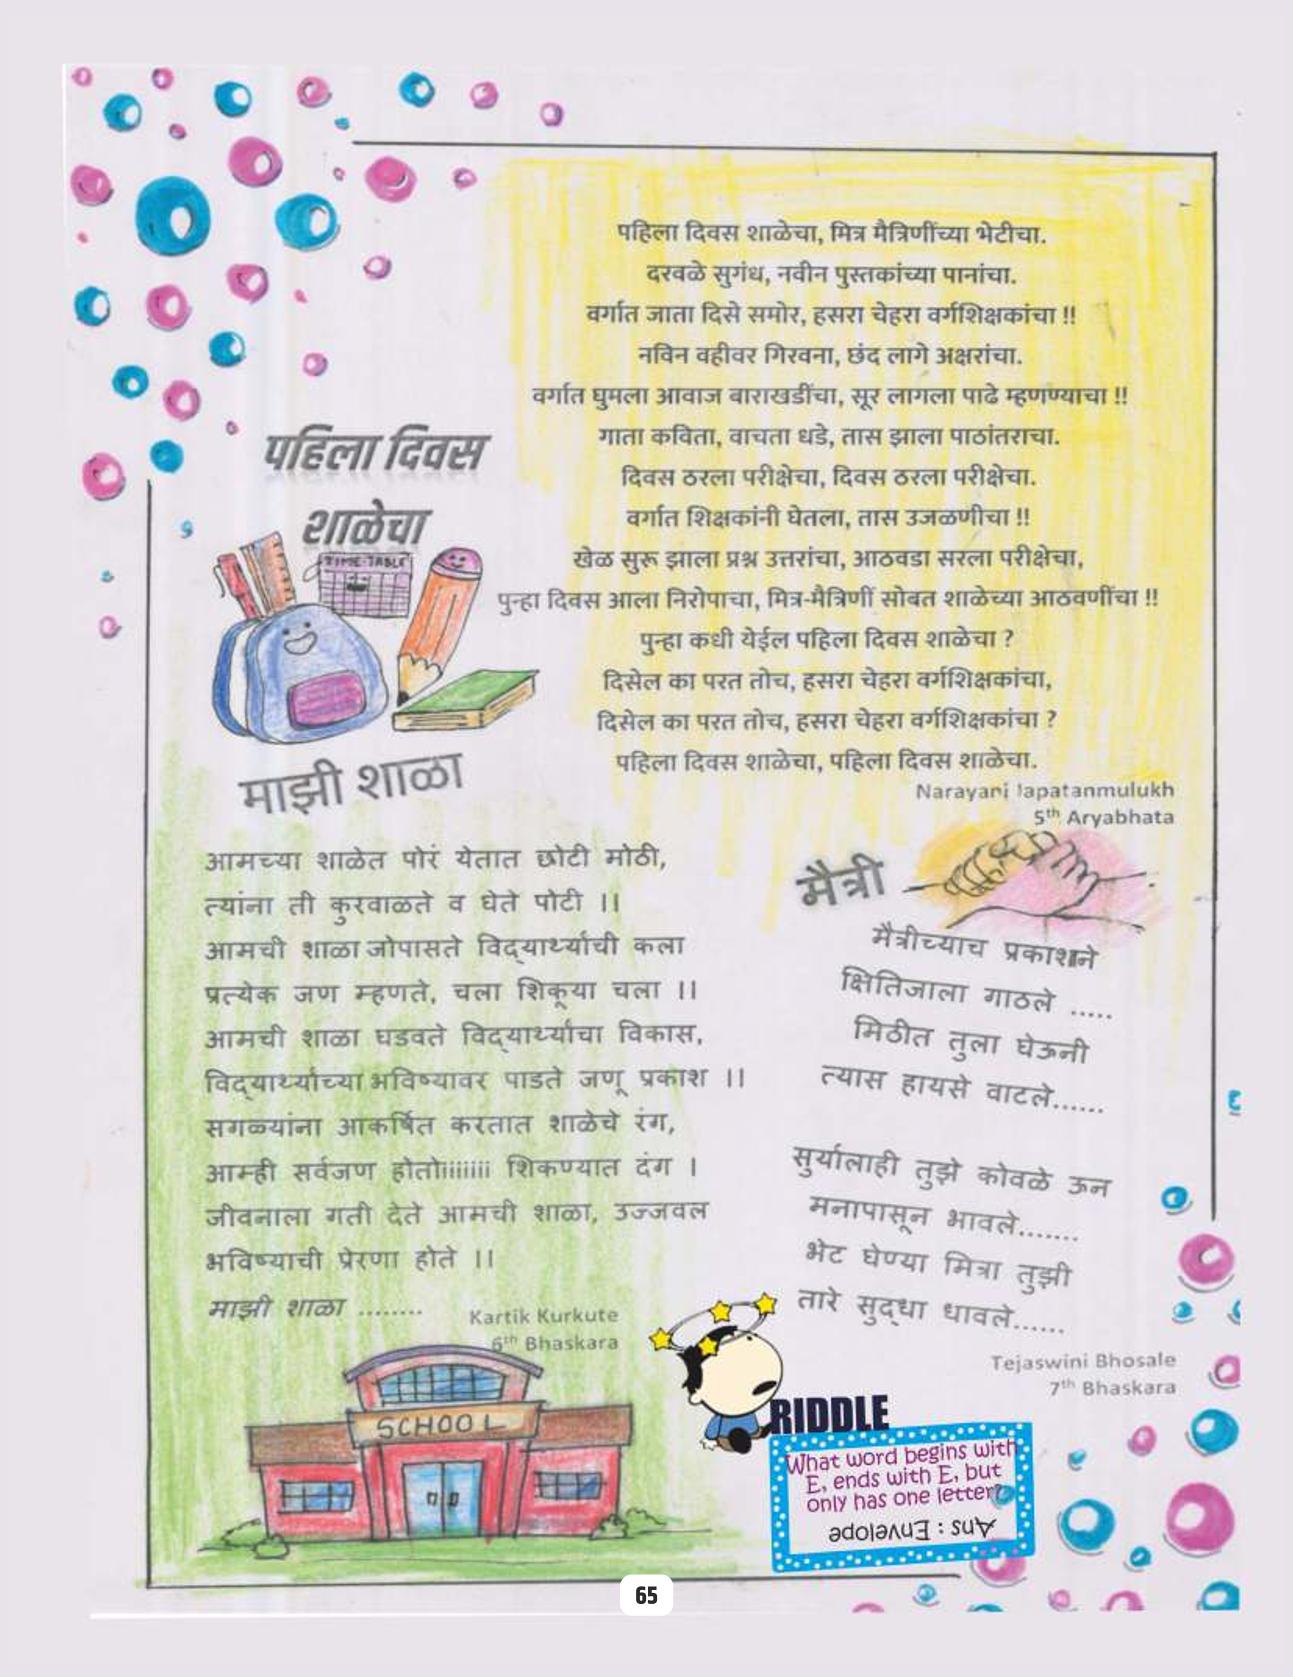 पहिला दिवस
शाळेचा
TIME-TABLE
पहिला दिवस शाळेचा, मित्र मैत्रिणींच्या भेटीचा.
दरवळे सुगंध, नवीन पुस्तकांच्या पानांचा.
वर्गात जाता दिसे समोर, हसरा चेहरा वर्गशिक्षकांचा !!
नविन वहीवर गिरवना, छंद लागे अक्षरांचा.
वर्गात घुमला आवाज बाराखडींचा, सूर लागला पाढे म्हणण्याचा !!
गाता कविता, वाचता धडे, तास झाला पाठांतराचा.
दिवस ठरला परीक्षेचा, दिवस ठरला परीक्षेचा.
वर्गात शिक्षकांनी घेतला, तास उजळणीचा !!
खेळ सुरू झाला प्रश्न उत्तरांचा, आठवडा सरला परीक्षेचा,
पुन्हा दिवस आला निरोपाचा, मित्र-मैत्रिणीं सोबत शाळेच्या आठवणींचा !!
पुन्हा कधी येईल पहिला दिवस शाळेचा ?
दिसेल का परत तोच, हसरा चेहरा वर्गशिक्षकांचा,
दिसेल का परत तोच, हसरा चेहरा वर्गशिक्षकांचा ?
पहिला दिवस शाळेचा, पहिला दिवस शाळेचा.
Narayani
5th Aryabhata
माझी शाळा
आमच्या शाळेत पोरं येतात छोटी मोठी,
त्यांना ती कुरवाळते व घेते पोटी ।।
आमची शाळा जोपासते विद्यार्थ्यांची कला
प्रत्येक जण म्हणते, चला शिकूया चला ।।
आमची शाळा घडवते विद्यार्थ्यांचा विकास,
विद्यार्थ्यांच्या भविष्यावर पाडते जणू प्रकाश ।।
सगळ्यांना आकर्षित करतात शाळेचे रंग,
आम्ही सर्वजण होतोiiiiiiii शिकण्यात दंग ।
जीवनाला गती देते आमची शाळा, उज्जवल
भविष्याची प्रेरणा होते ।।
माझी शाळा ........
Kartik Kurkute
6th Bhaskara
SCHOOL
मैत्री
मैत्रीच्याच प्रकाशने
क्षितिजाला गाठले .....
मिठीत तुला घेऊनी
त्यास हायसे वाटले......
सुर्यालाही तुझे कोवळे ऊन
मनापासून भावले.......
भेट घेण्या मित्रा तुझी
तारे सुद्धा धावले......
Tejaswini Bhosale
7th Bhaskara
RIDDLE
What word begins with
E, ends with E, but
only has one letter?
Ans : Envelope
65